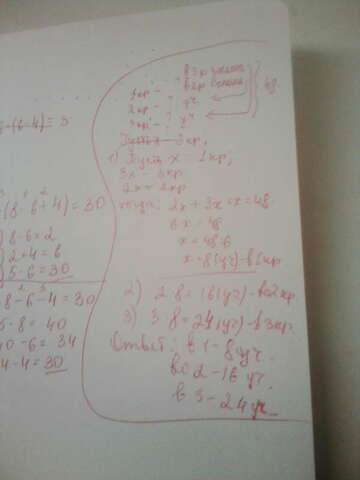 5-(6-4)=3
(8-6+4)=30
8-6=2
2+4=6
5·6=30
8-6-4=30
5·8=40
40-6=34
34-4=30
в 3р
в 2р
1кр - ?
2кр - ? уч
3кр - ? уч
48
1) Пусть x - 1кр,
3x - 3кр
2x - 2кр
тогда 2x+3x+x=48
6x=48
x=48:6
x=8(уч)-в 1кр
2) 2·8=16(уч)-во 2кр
3) 3·8=24(уч)-в 3кр
Ответ: в 1-8уч.
во 2-16 уч.
в 3-24 уч.